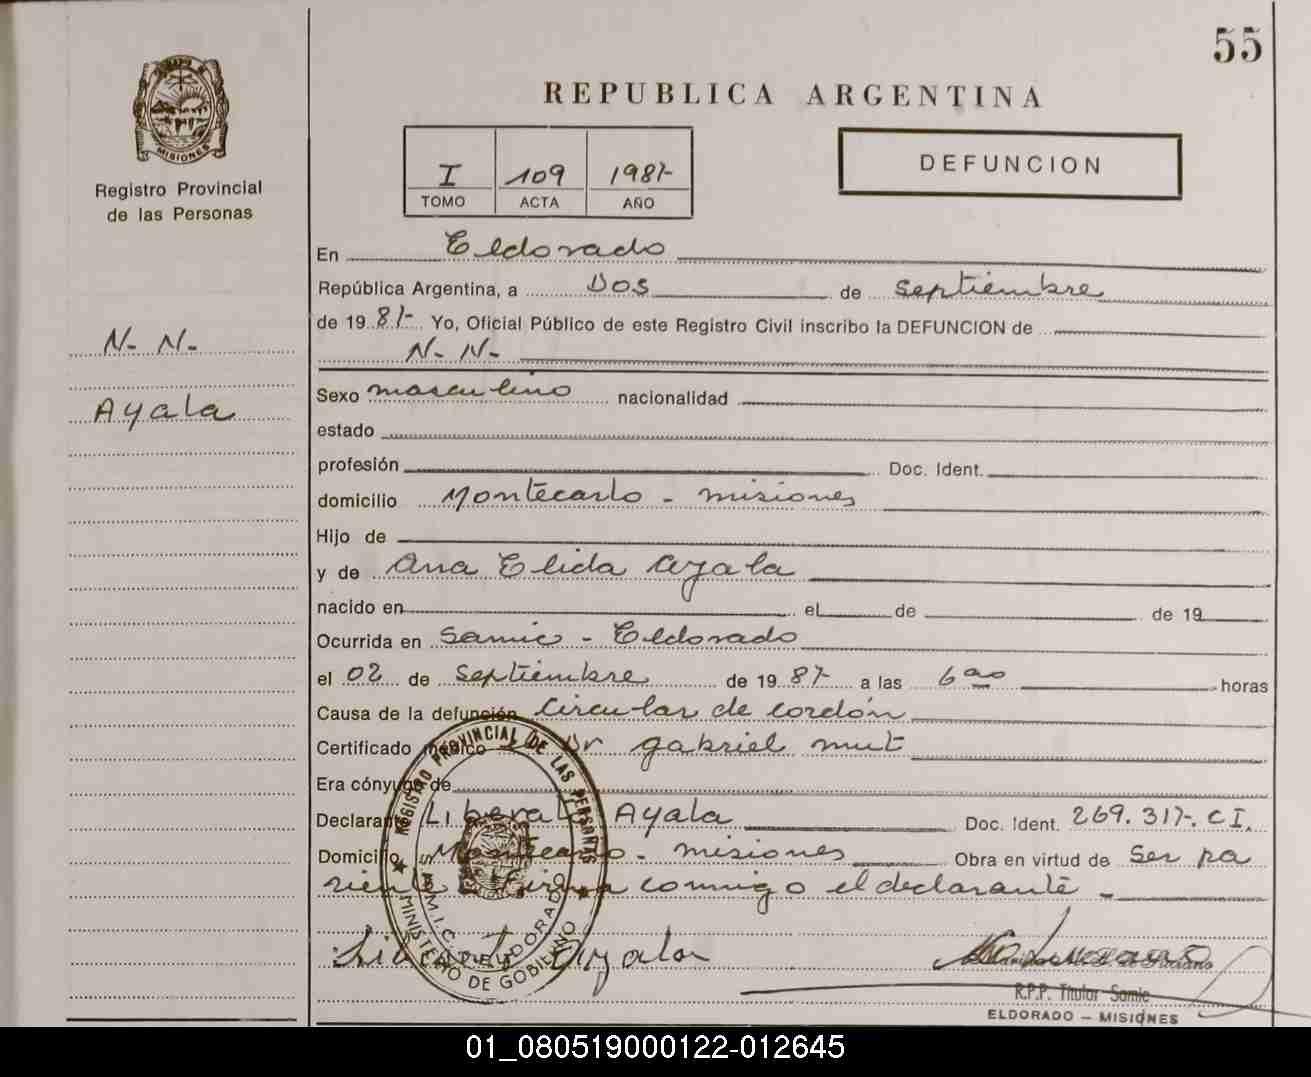 55
REPUBLICA ARGENTINA
MISIONES
Registro Provincial
de las Personas
I 109 1981-
TOMO ACTA AÑO
DEFUNCION
N- N-
Ayala
En Eldorado
República Argentina, a Dos de septiembre
de 19 81- Yo, Oficial Público de este Registro Civil inscribo la DEFUNCION de
N- N-
Sexo masculino nacionalidad
estado
profesión Doc. Ident.
domicilio Montecarlo - misiones
Hijo de
y de Ana Elida Ayala
nacido en el de de 19
Ocurrida en Samic - Eldorado
el 02 de septiembre de 19 81- a las 6 horas
Causa de la defunción Circular de cordón
Certificado médico Dr gabriel mut
Era cónyuge de
Declarante Liberato Ayala Doc. Ident. 269.317-. CI.
Domicilio Montecarlo - misiones Obra en virtud de Ser pa
riente firma conmigo el declarante -
REGISTRO PROVINCIAL DE LAS PERSONAS
MINISTERIO DE GOBIERNO
S.A.M.I.C. ELDORADO
Liberato Ayala
R.P.P. Titular Samic
ELDORADO - MISIONES
01_080519000122-012645